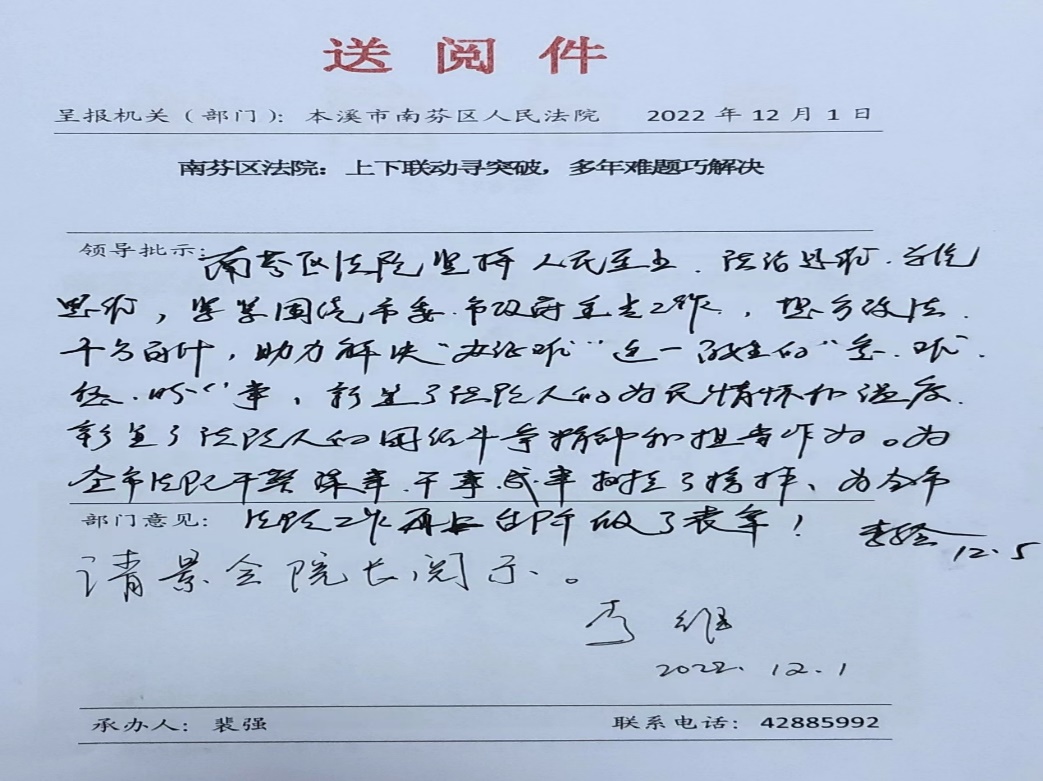 送阅件
呈报机关（部门）：本溪市南芬区人民法院 2022年12月1日
南芬区法院：上下联动寻突破，多年难题巧解决
领导批示：南芬区法院坚持人民至上、法治思行、
思行，紧紧围绕市委、市政府重点工作，想方设法、
千方百计，助力解决“办证难”这一改生的“急、难、
愁、盼”事，彰显了法院人的为民情怀和温度，
彰显了法院人的团结斗争精神和担当作为。为
全市法院干警谋事、干事、成事树立了榜样、为全市
部门意见：法院工作再上台阶做了表率！
12.5
请景会院长阅示。
2022.12.1
承办人：裴强 联系电话：42885992